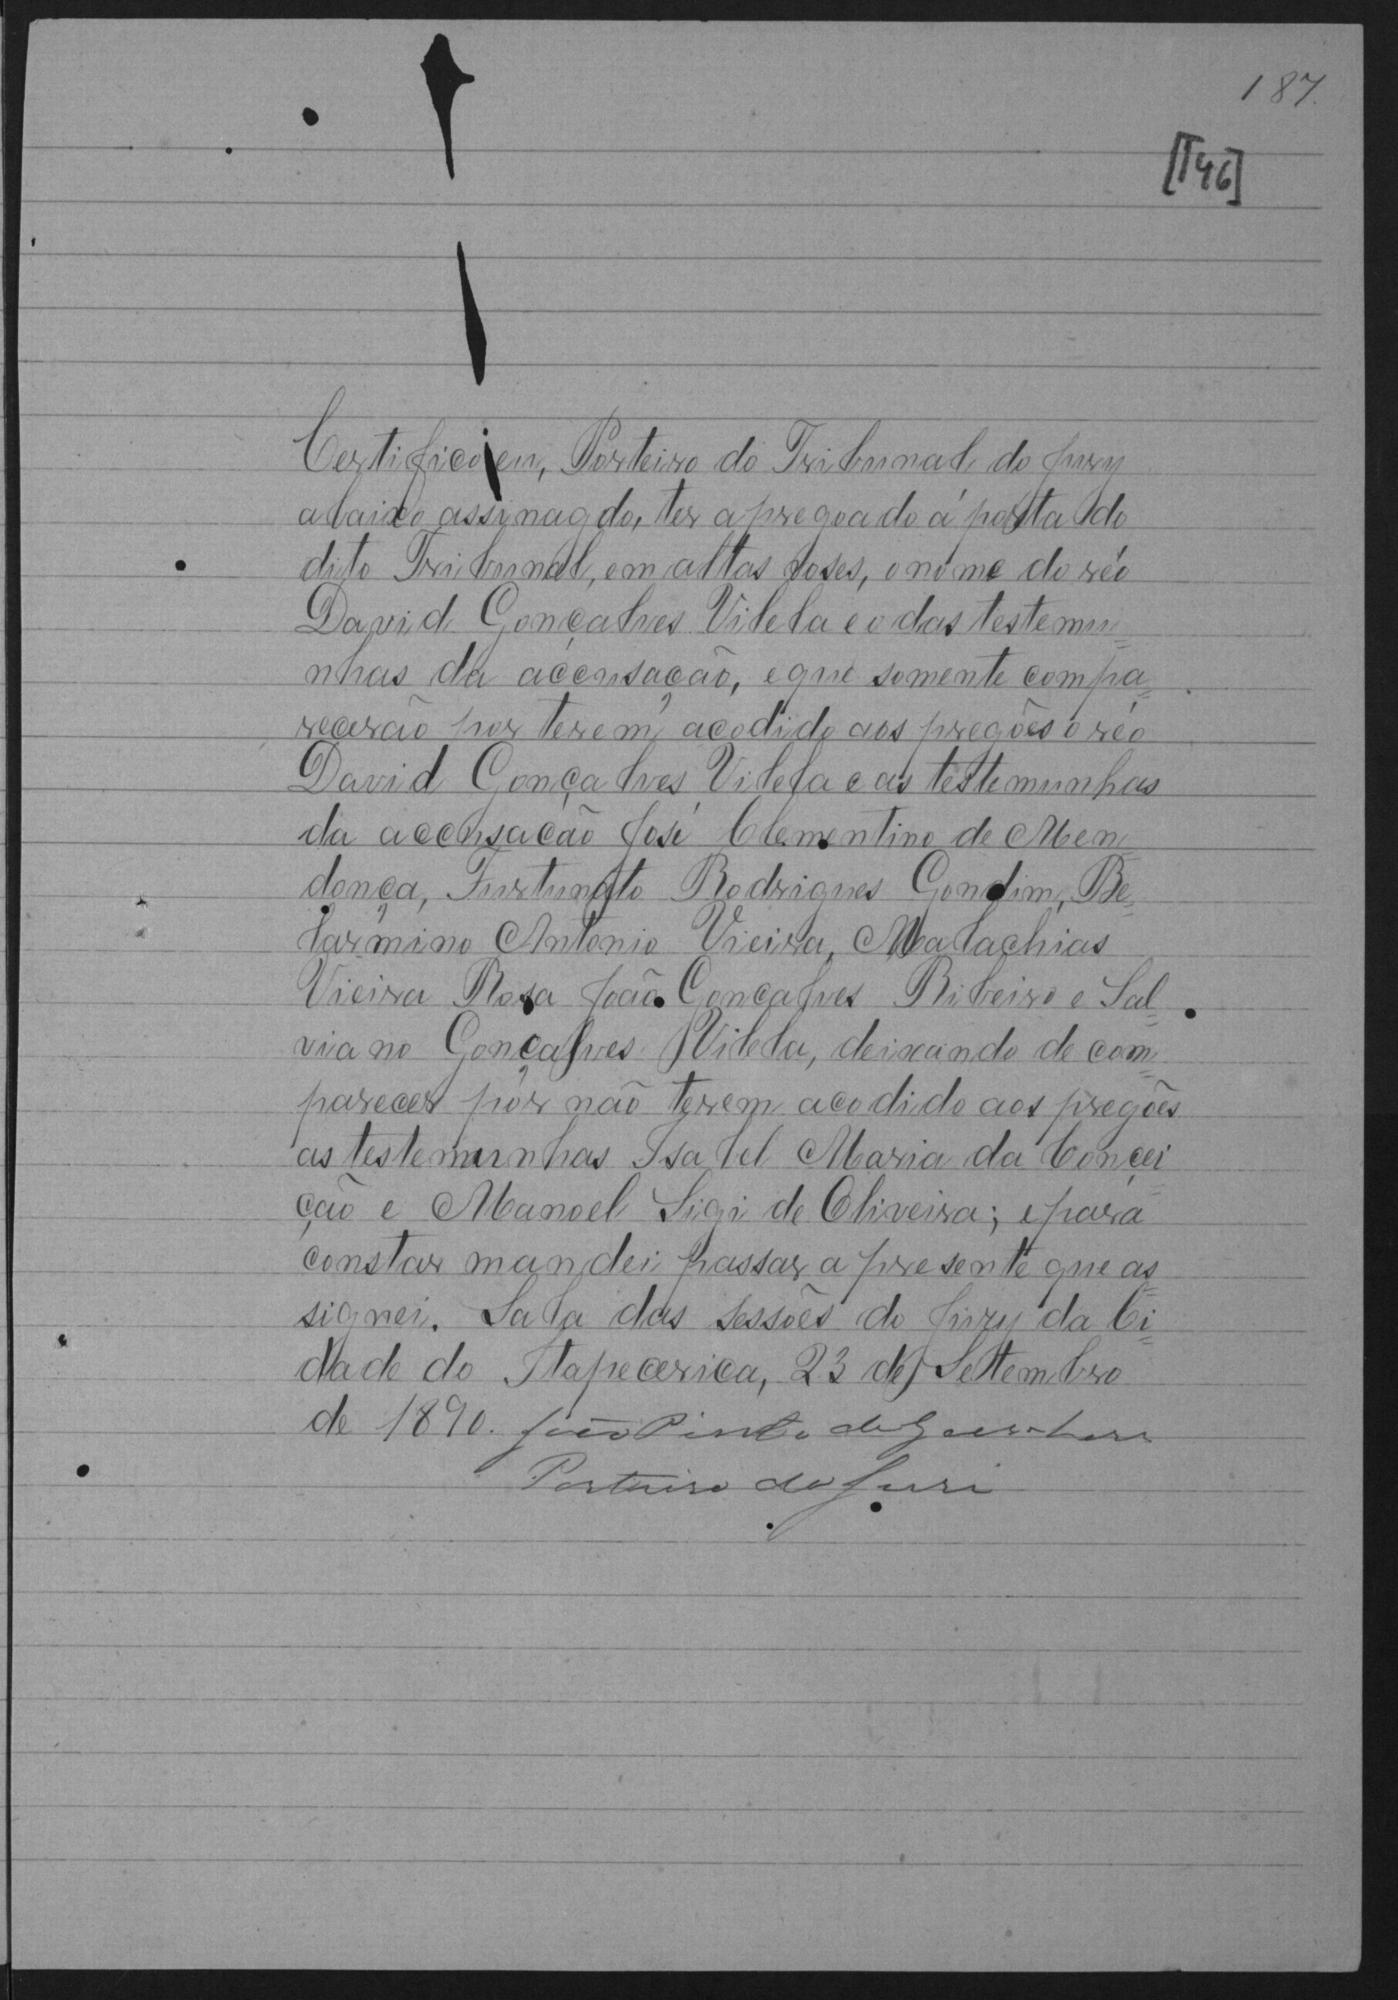 187.
[T46]
Certifico eu, Porteiro do Tribunal do Jury
abaixo assignado, ter apregoado á porta do
dito Tribunal, em altas voses, o nome do réo
David Gonçalves Vilela e o das testemu=
nhas da accusação, e que somente compa=
recerão por terem acodido aos pregões o réo
David Gonçalves Vilela e as testemunhas
da accusação José Clementino de Men=
donça, Furtunato Rodrigues Gondim, Be=
larmino Antonio Vieira, Malachias
Vieira Rosa João Gonçalves Ribeiro e Sal=
viano Gonçalves Vilela, deixando de com=
parecer por não terem acodido aos pregões
as testemunhas Isabel Maria da Concei=
ção e Manoel Sigi de Oliveira; e para
constar mandei passar a presente que as=
signei. Sala das sessões do Jury da Ci=
dade do Itapecerica, 23 de Settembro
de 1890. João Pinto de
Porteiro do Juri